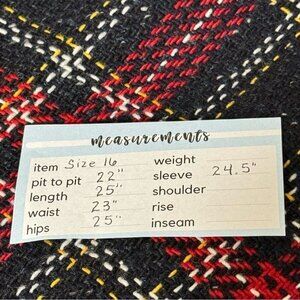 measurements
item Size 16 weight
pit to pit 22" sleeve 24.5"
length 25" shoulder
waist 23" rise
hips 25" inseam